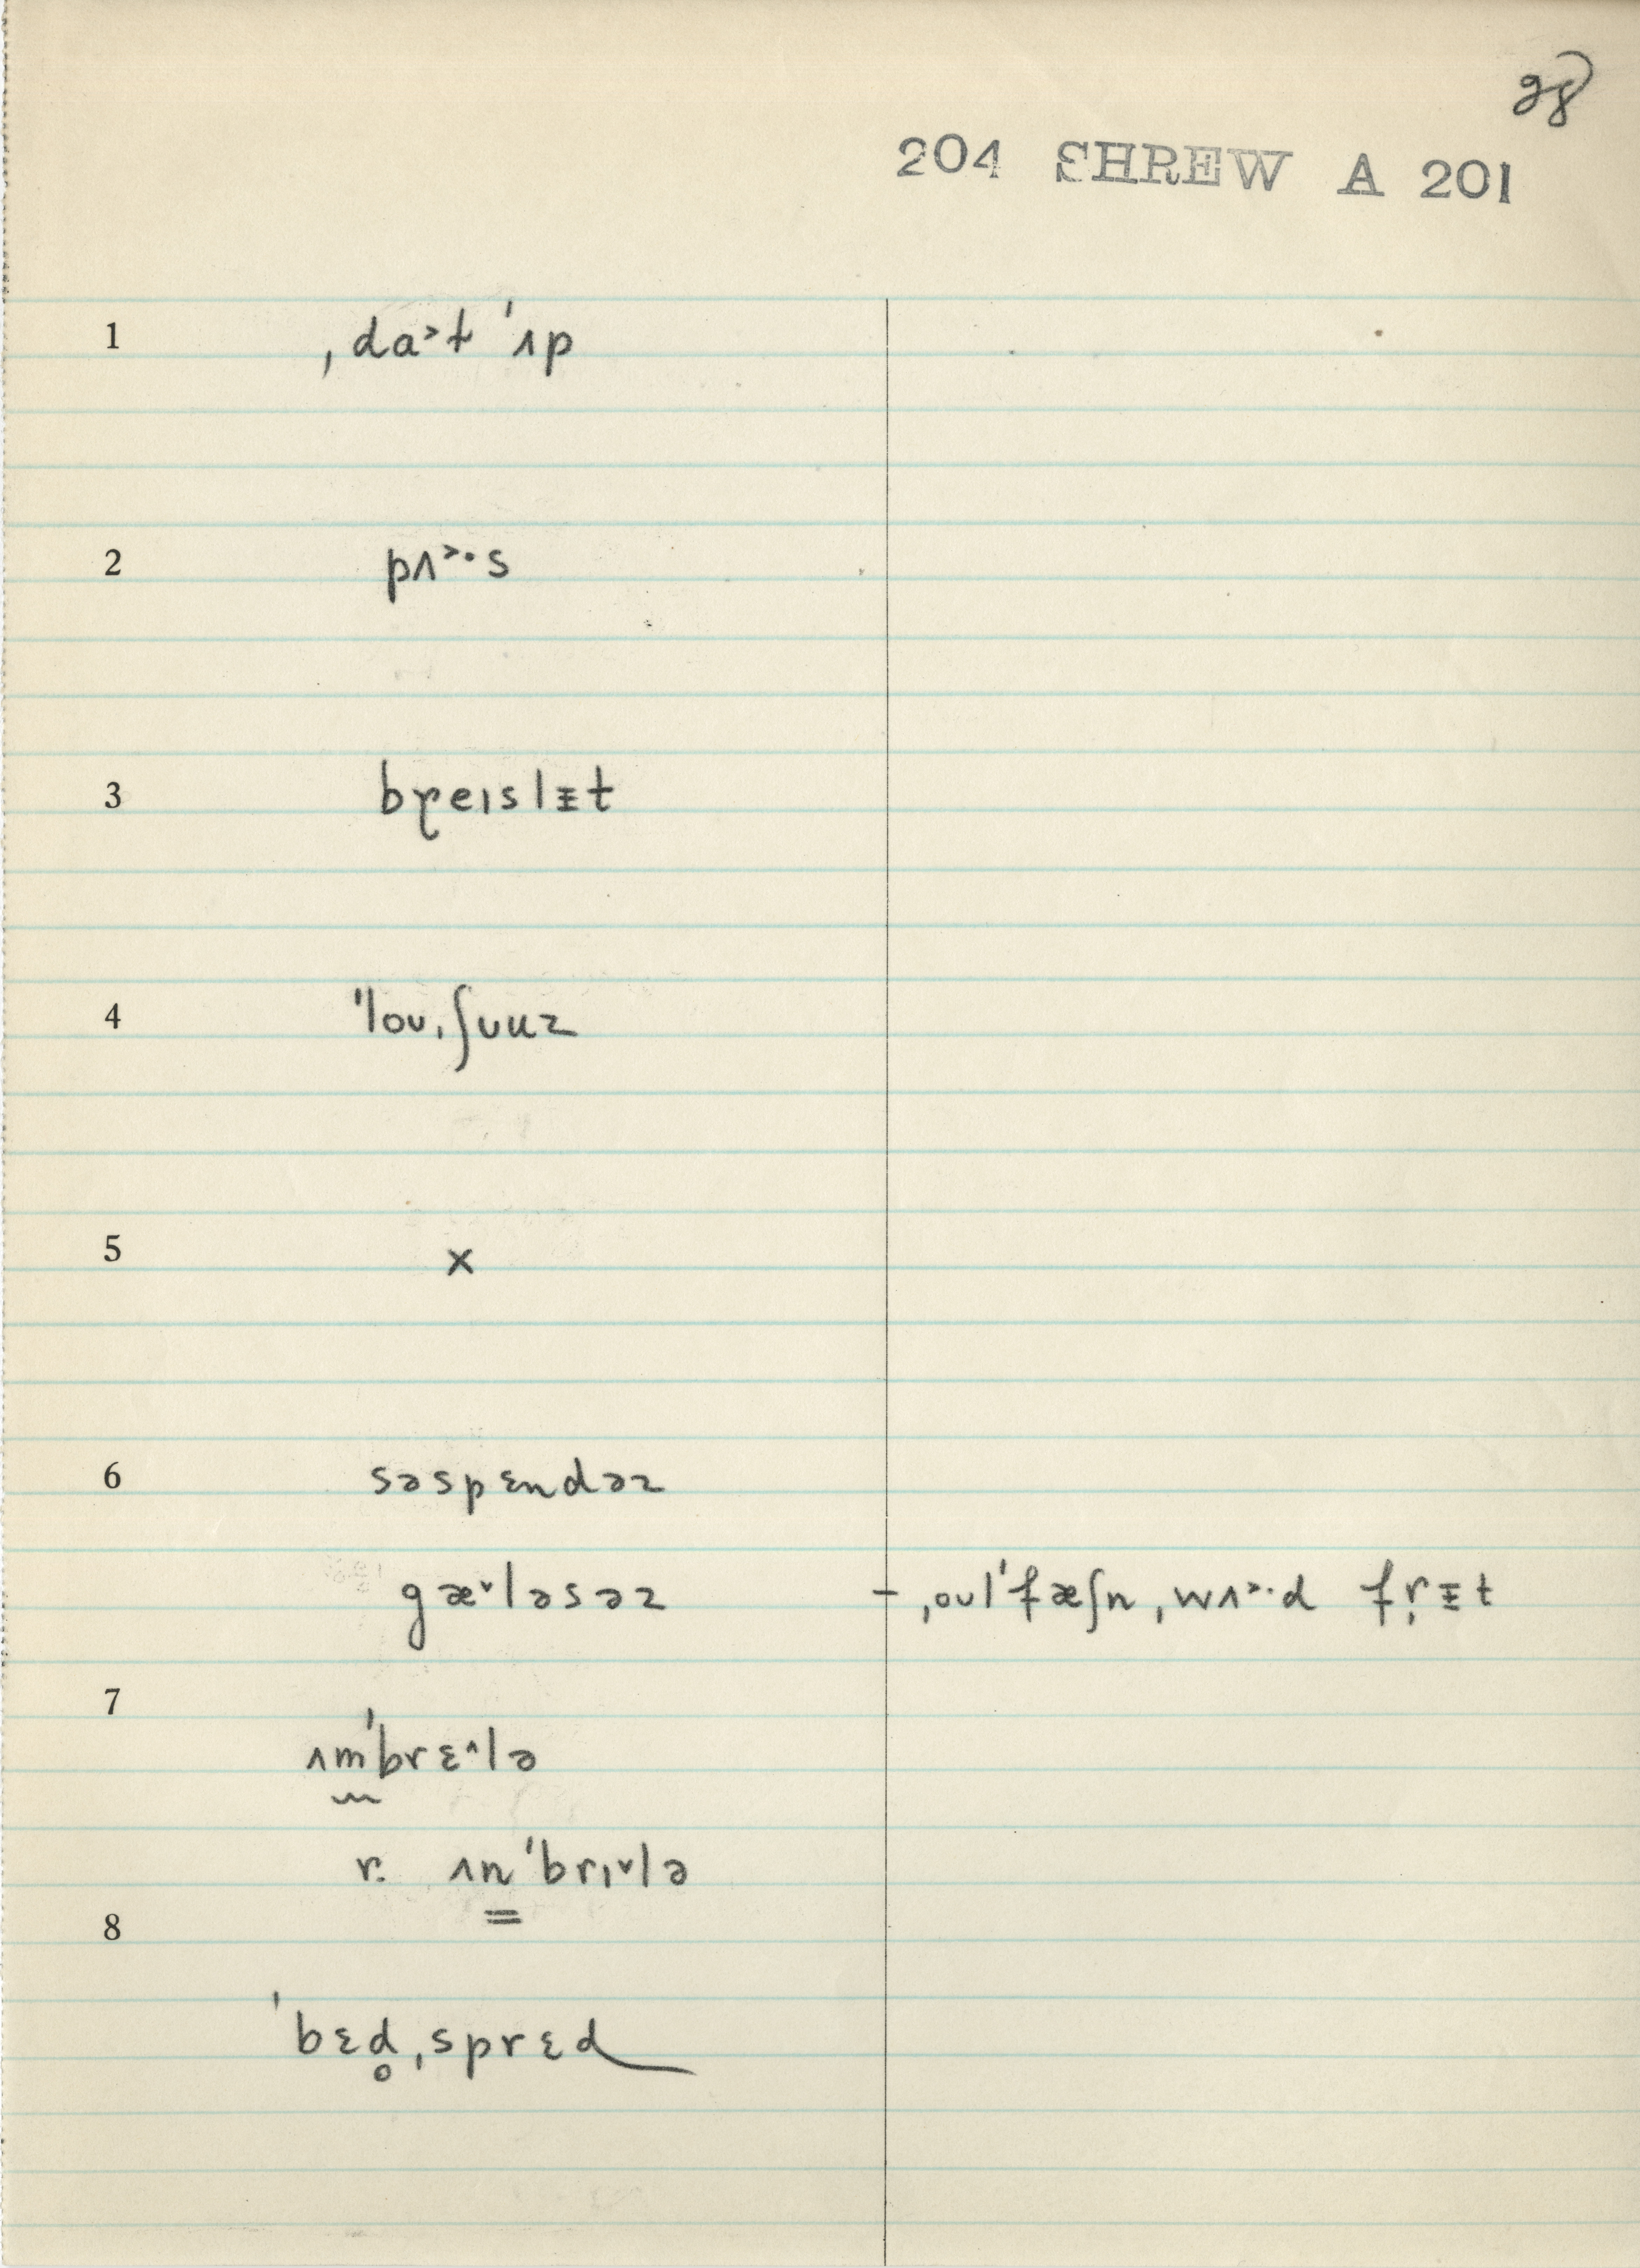 28
204 SHREW A 201
1 ˌdɑ˃t ˈʌp
2 pʌ˃·s
3 bɽeɪslᵻt
4 ˈloʊˌʃʊuz
5 x
6 səspɛndəz
gæ˅ləsəz – ˌoʊlˈfæʃn ˌwʌ˃·d fr̩ᵻt
7
ʌm̰ˈbrɛ˄lə
r. ʌn̳ˈbrɪ˅lə
8
ˈbɛd̥ˌsprɛd